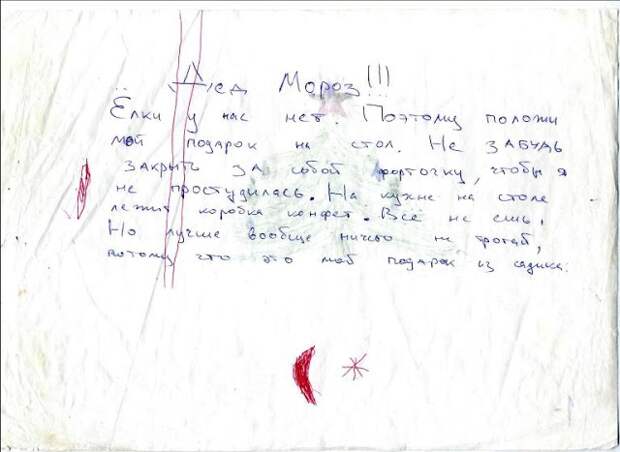 Дед Мороз!!!
Ёлки у нас нет. Поэтому положи
мой подарок на стол. Не ЗАБУДЬ
ЗАКРЫТЬ ЗА собой форточку, чтобы я
не простудилась. На кухне на столе
лежит коробка конфет. Всё не ешь.
Но лучше вообще ничего не трогай,
потому что это мой подарок из садика.